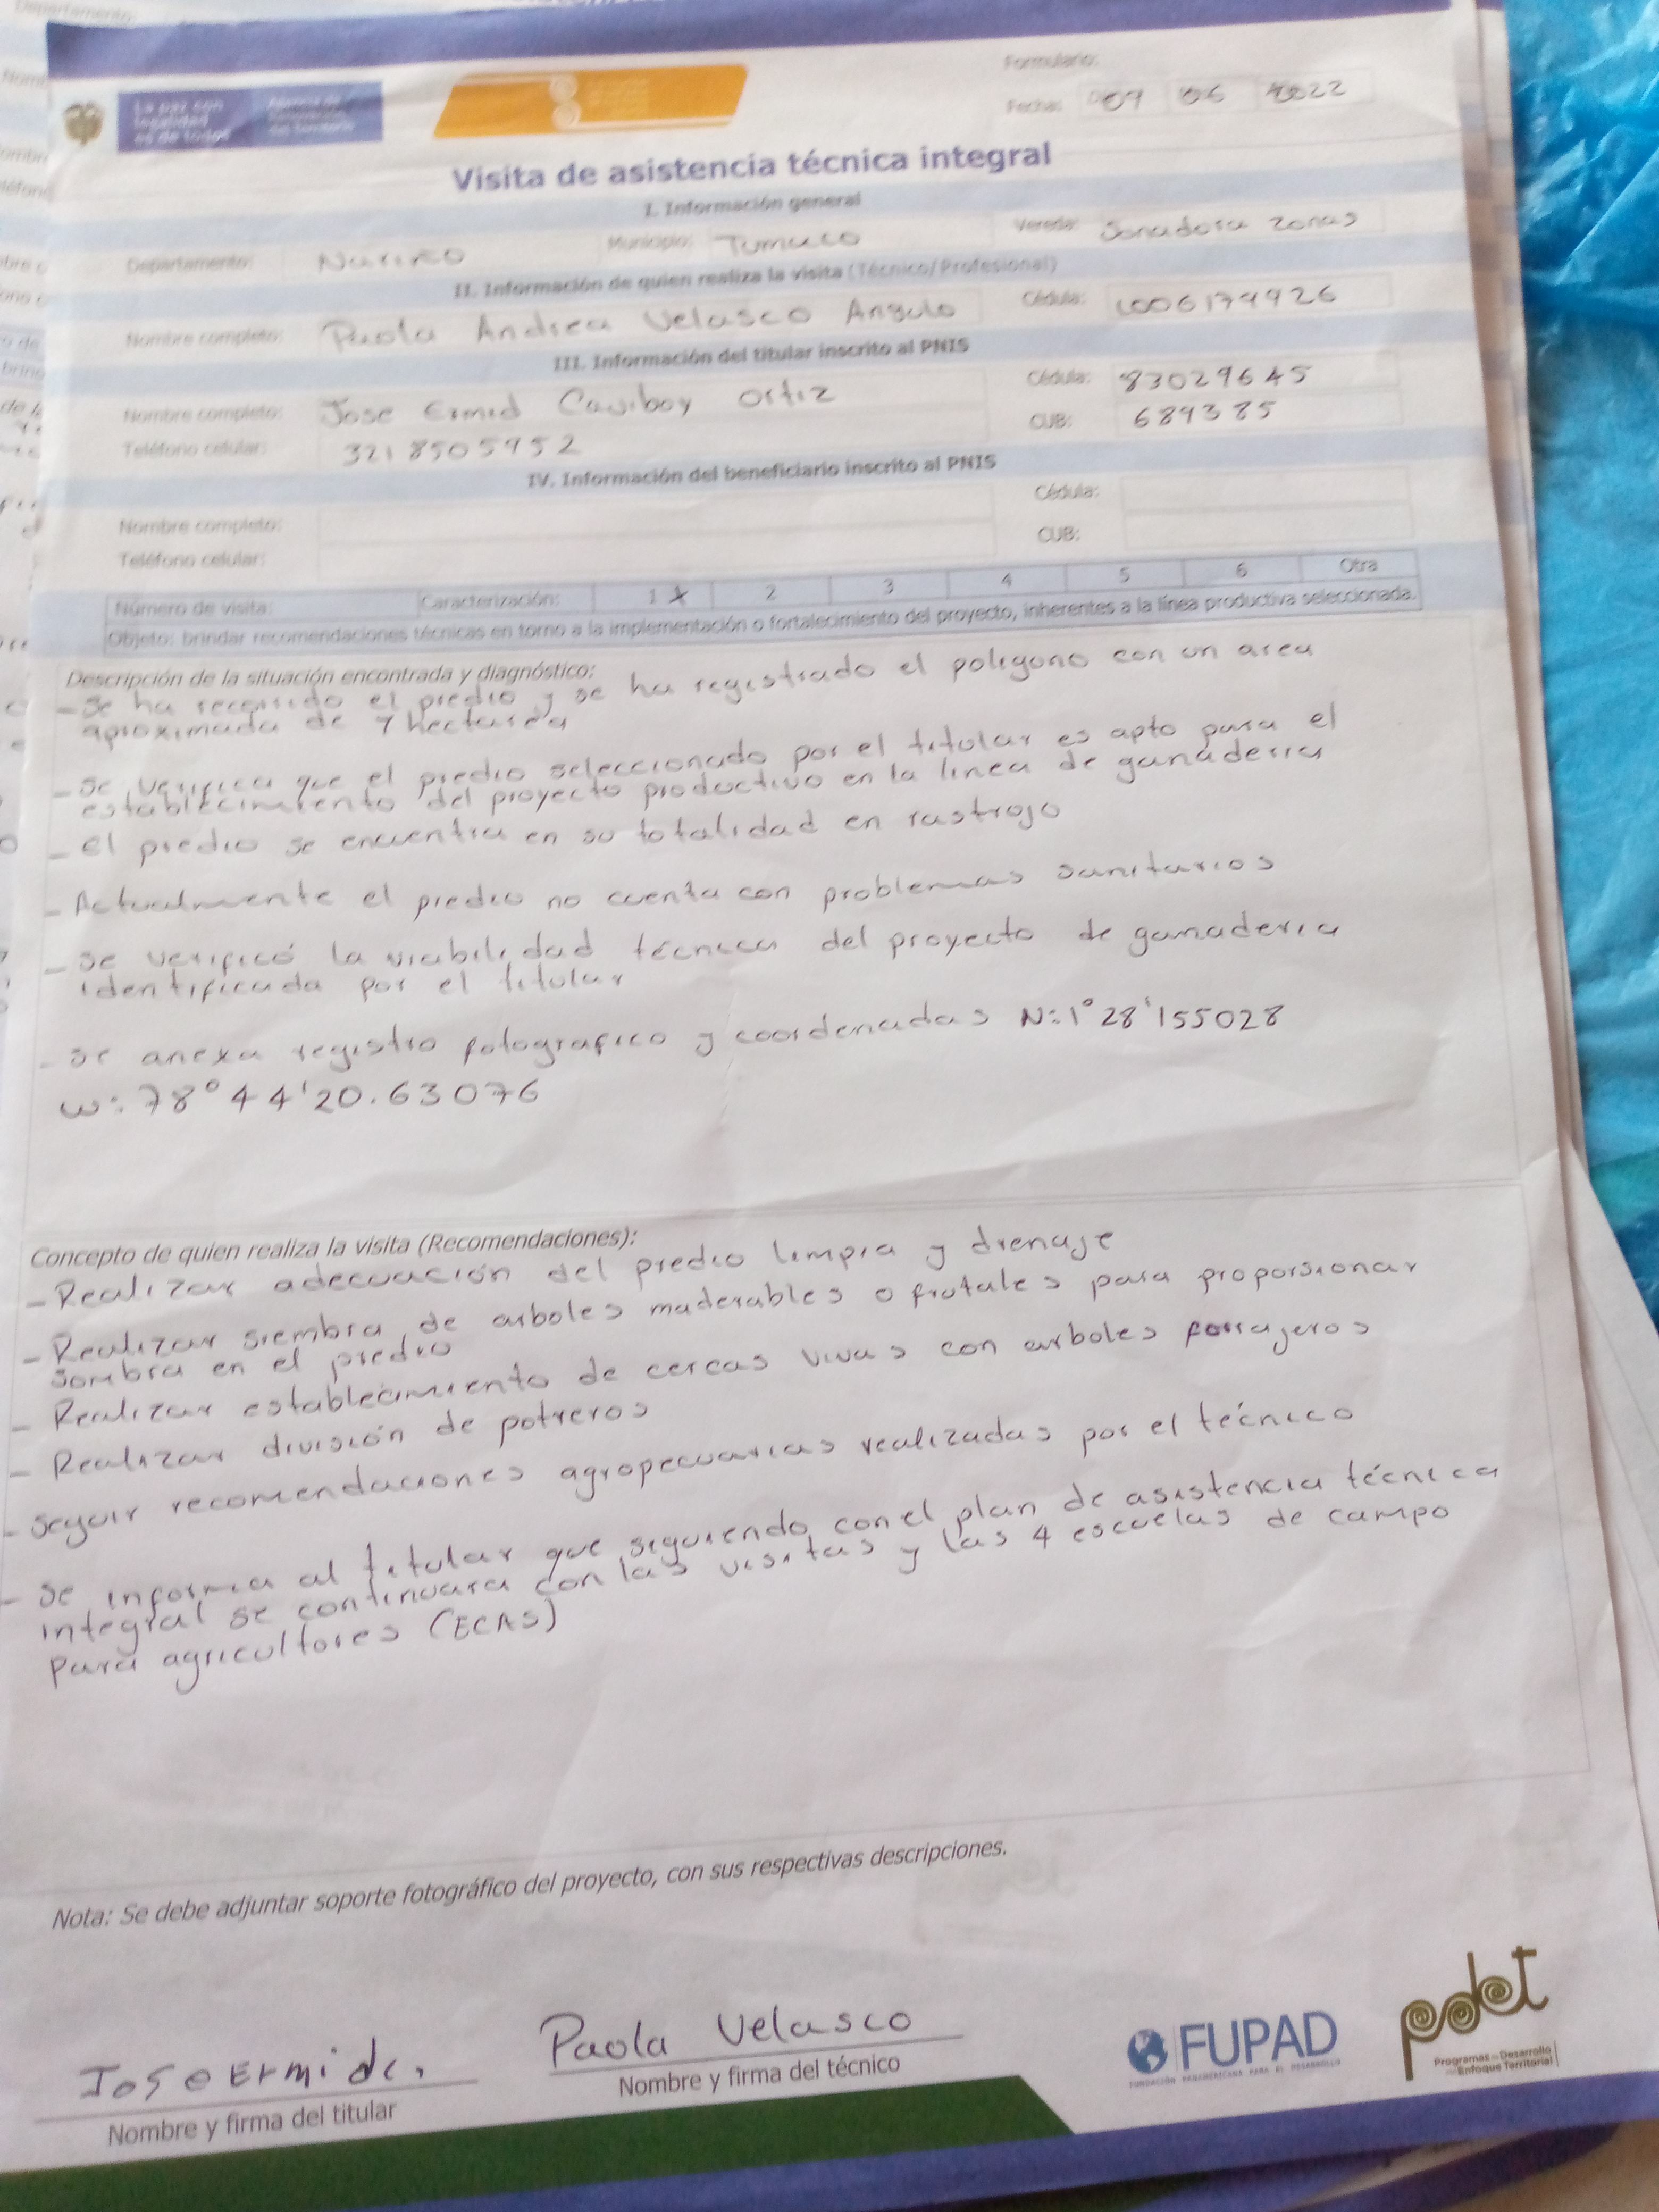 Formulario:
La paz con legalidad es de todos
Fecha: 09 06 2022
Visita de asistencia técnica integral
I. Información general
Departamento: Nariño Municipio: Tumaco Vereda: Sonadora Zonas
II. Información de quien realiza la visita (Técnico/Profesional)
Nombre completo: Paola Andrea Velasco Angulo Cédula: 1006179926
III. Información del titular inscrito al PNIS
Nombre completo: Jose Ermid Caviboy Ortiz Cédula: 83029645
Teléfono celular: 3218505952 CUB: 689385
IV. Información del beneficiario inscrito al PNIS
Nombre completo: Cédula:
Teléfono celular: CUB:
Número de visita: Caracterización: 1 X 2 3 4 5 6 Otra
Objeto: brindar recomendaciones técnicas en torno a la implementación o fortalecimiento del proyecto, inherentes a la línea productiva seleccionada.
Descripción de la situación encontrada y diagnóstico:
- Se ha recorrido el predio y se ha registrado el poligono con un area
aproximada de 7 hectarea
- Se verifica que el predio seleccionado por el titular es apto para el
establecimiento del proyecto productivo en la linea de ganaderia
- El predio se encuentra en su totalidad en rastrojo
- Actualmente el predio no cuenta con problemas sanitarios
- Se verificó la viabilidad técnica del proyecto de ganaderia
identificada por el titular
- Se anexa registro fotografico y coordenadas N:1°28'155028
W:78°44'20.63076
Concepto de quien realiza la visita (Recomendaciones):
- Realizar adecuación del predio limpia y drenaje
- Realizar siembra de arboles maderables o frutales para proporsionar
sombra en el predio
- Realizar establecimiento de cercas vivas con arboles forrajeros
- Realizar división de potreros
- Seguir recomendaciones agropecuarias realizadas por el técnico
- Se informa al titular que siguiendo con el plan de asistencia técnica
integral se continuara con las visitas y las 4 escuelas de campo
para agricultores (ECAS)
Nota: Se debe adjuntar soporte fotográfico del proyecto, con sus respectivas descripciones.
Jose Ermid c. Paola Velasco
Nombre y firma del titular Nombre y firma del técnico
FUPAD
FUNDACIÓN PANAMERICANA PARA EL DESARROLLO
pdet
Programas de Desarrollo con Enfoque Territorial